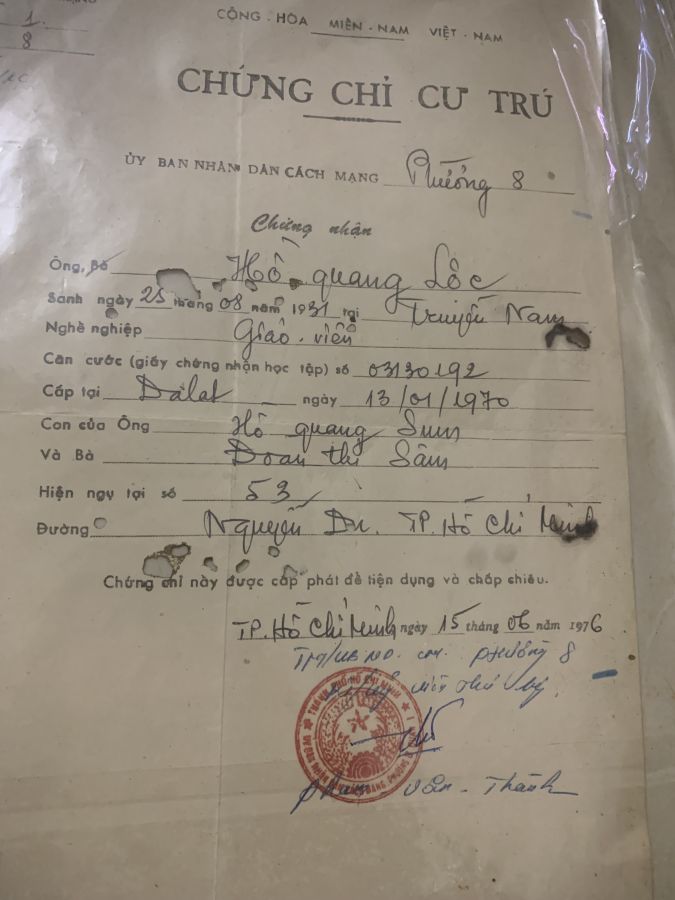 1.
8
CỘNG - HÒA MIỀN - NAM VIỆT - NAM
CHỨNG CHỈ CƯ TRÚ
ỦY BAN NHÂN DÂN CÁCH MẠNG Phường 8
Chứng nhận
Ông, Bà Hồ quang Lộc
Sanh ngày 25 tháng 08 năm 1931 tại Truyền Nam
Nghề nghiệp Giáo - viên
Căn cước (giấy chứng nhận học tập) số 03130192
Cấp tại Dalat ngày 13/01/1970
Con của Ông Hồ quang Sum
Và Bà Đoàn thị Sâm
Hiện ngụ tại số 53
Đường Nguyễn Du. TP. Hồ Chí Minh
Chứng chỉ này được cấp phát để tiện dụng và chấp chiếu.
TP. Hồ Chí Minh ngày 15 tháng 06 năm 1976
TM/UBND. CM. phường 8
THÀNH PHỐ HỒ CHÍ MINH
Văn - Thành